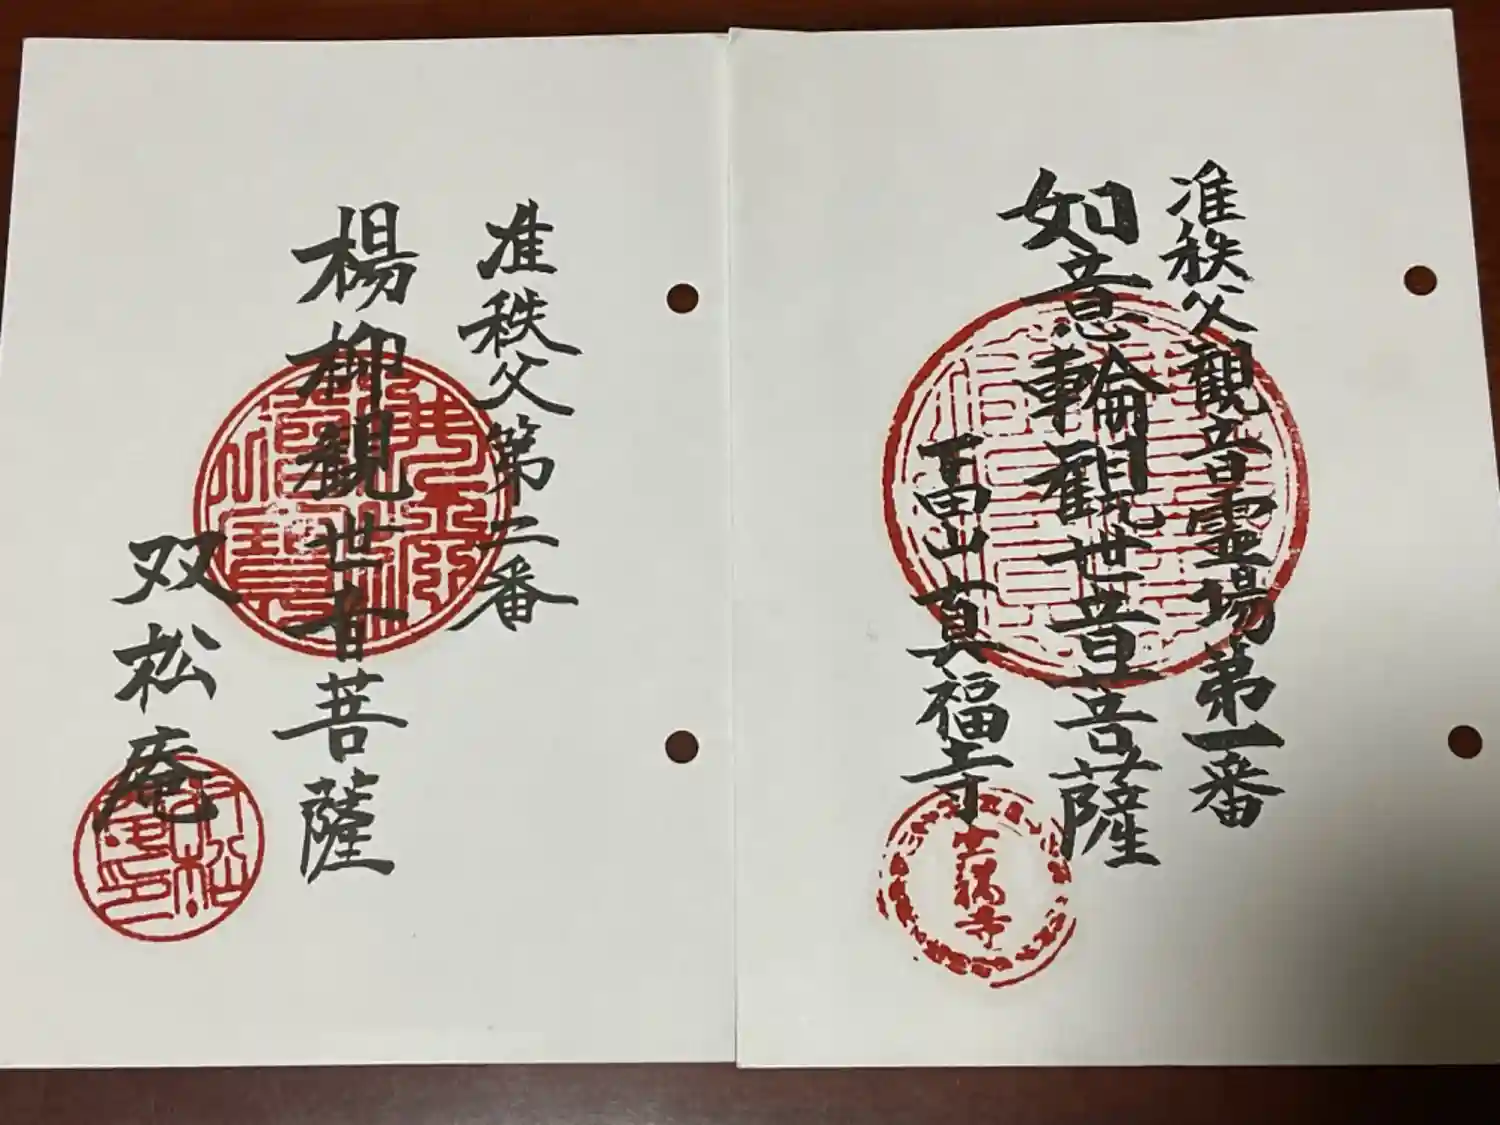 准秩父觀音霊場第一番
如意輪觀世音菩薩
下田山真福寺
真福寺
准秩父第二番
楊柳観世音菩薩
双松庵